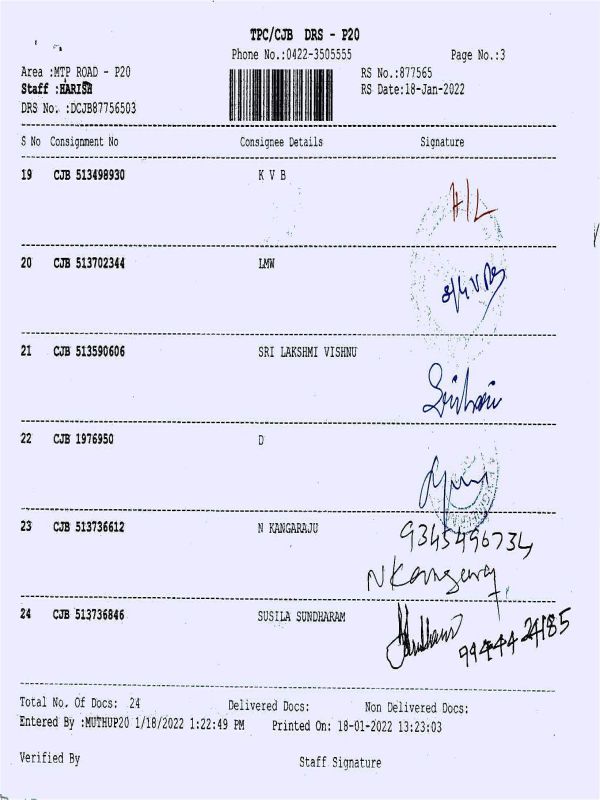 TPC/CJB DRS - P20
Phone No.:0422-3505555 Page No.:3
Area :MTP ROAD - P20 RS No.:877565
Staff :HARISH RS Date:18-Jan-2022
DRS No. :DCJB87756503
S No Consignment No Consignee Details Signature
19 CJB 513498930 K V B H/L
20 CJB 513702344 LMW
21 CJB 513590606 SRI LAKSHMI VISHNU
22 CJB 1976950 D
23 CJB 513736612 N KANGARAJU 9345496734
24 CJB 513736846 SUSILA SUNDHARAM 99444 24185
Total No. Of Docs: 24 Delivered Docs: Non Delivered Docs:
Entered By :MUTHUP20 1/18/2022 1:22:49 PM Printed On: 18-01-2022 13:23:03
Verified By Staff Signature